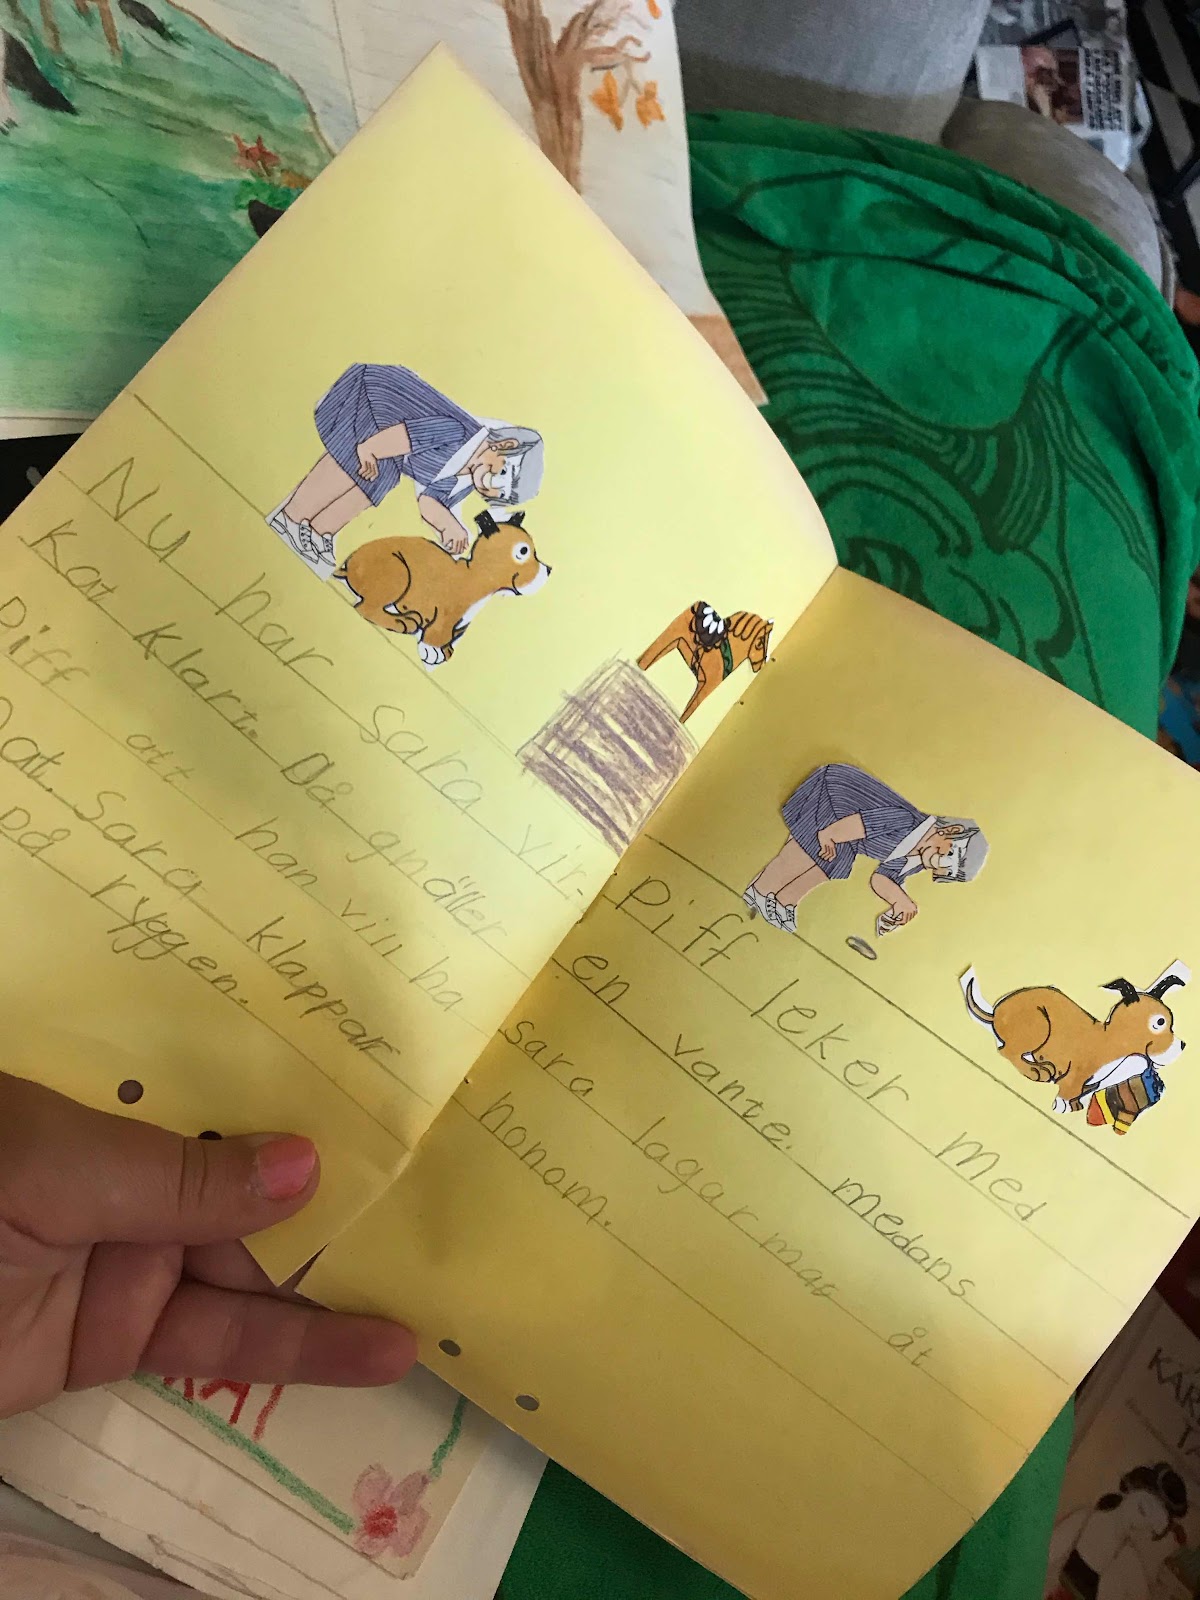 Nu har Sara vir-
kat klart. Då gnäller
Piff att han vill ha
mat. Sara klappar
på ryggen.
Piff leker med
en vante. medans
sara lagar mat åt
honom.
KÄR